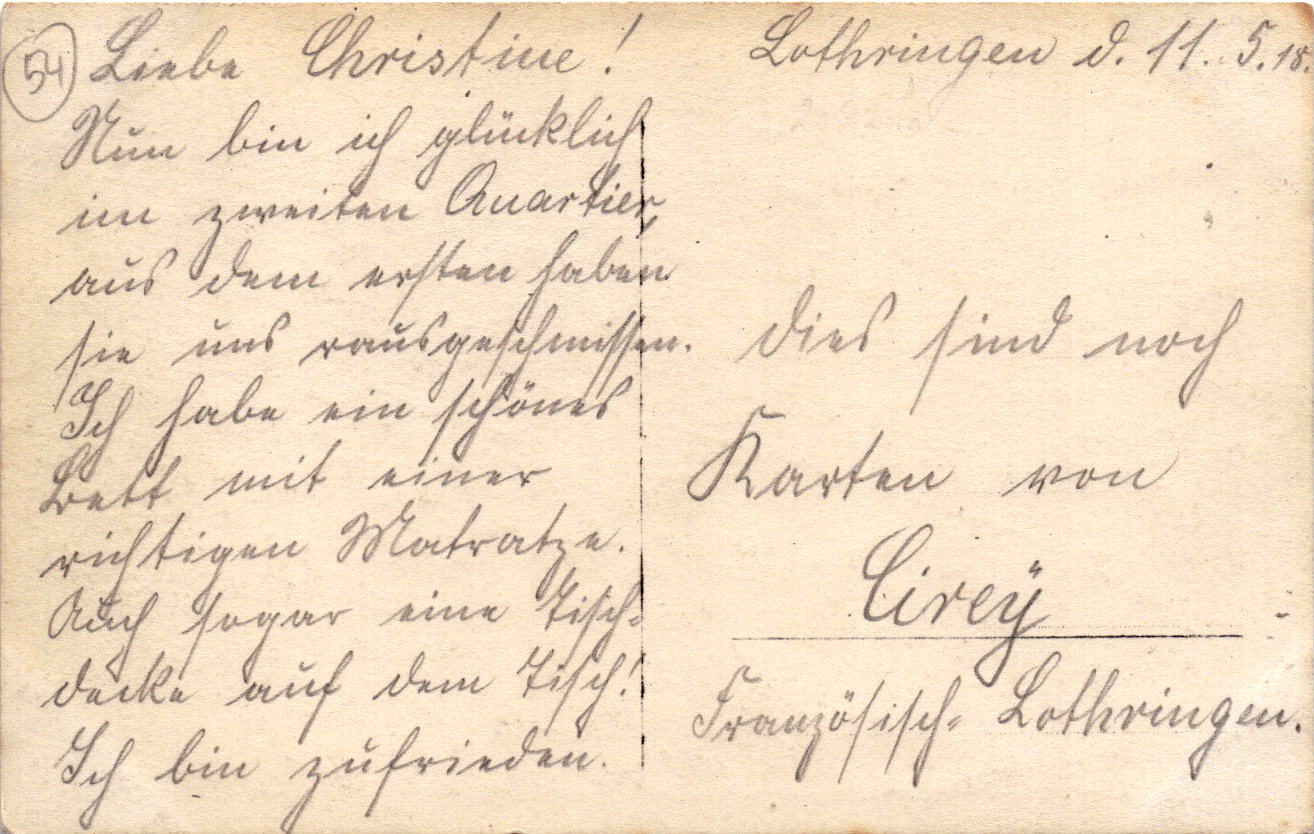 54
Liebe Christine!
Lothringen d. 11. 5. 18.
Nun bin ich glücklich
im zweiten Quartier,
aus dem ersten haben
sie uns rausgeschmissen.
Ich habe ein schönes
Bett mit einer
richtigen Matratze.
Auch sogar eine Tisch-
decke auf dem Tisch!
Ich bin zufrieden.
Dies sind noch
Karten von
Cirey
Französisch-Lothringen.